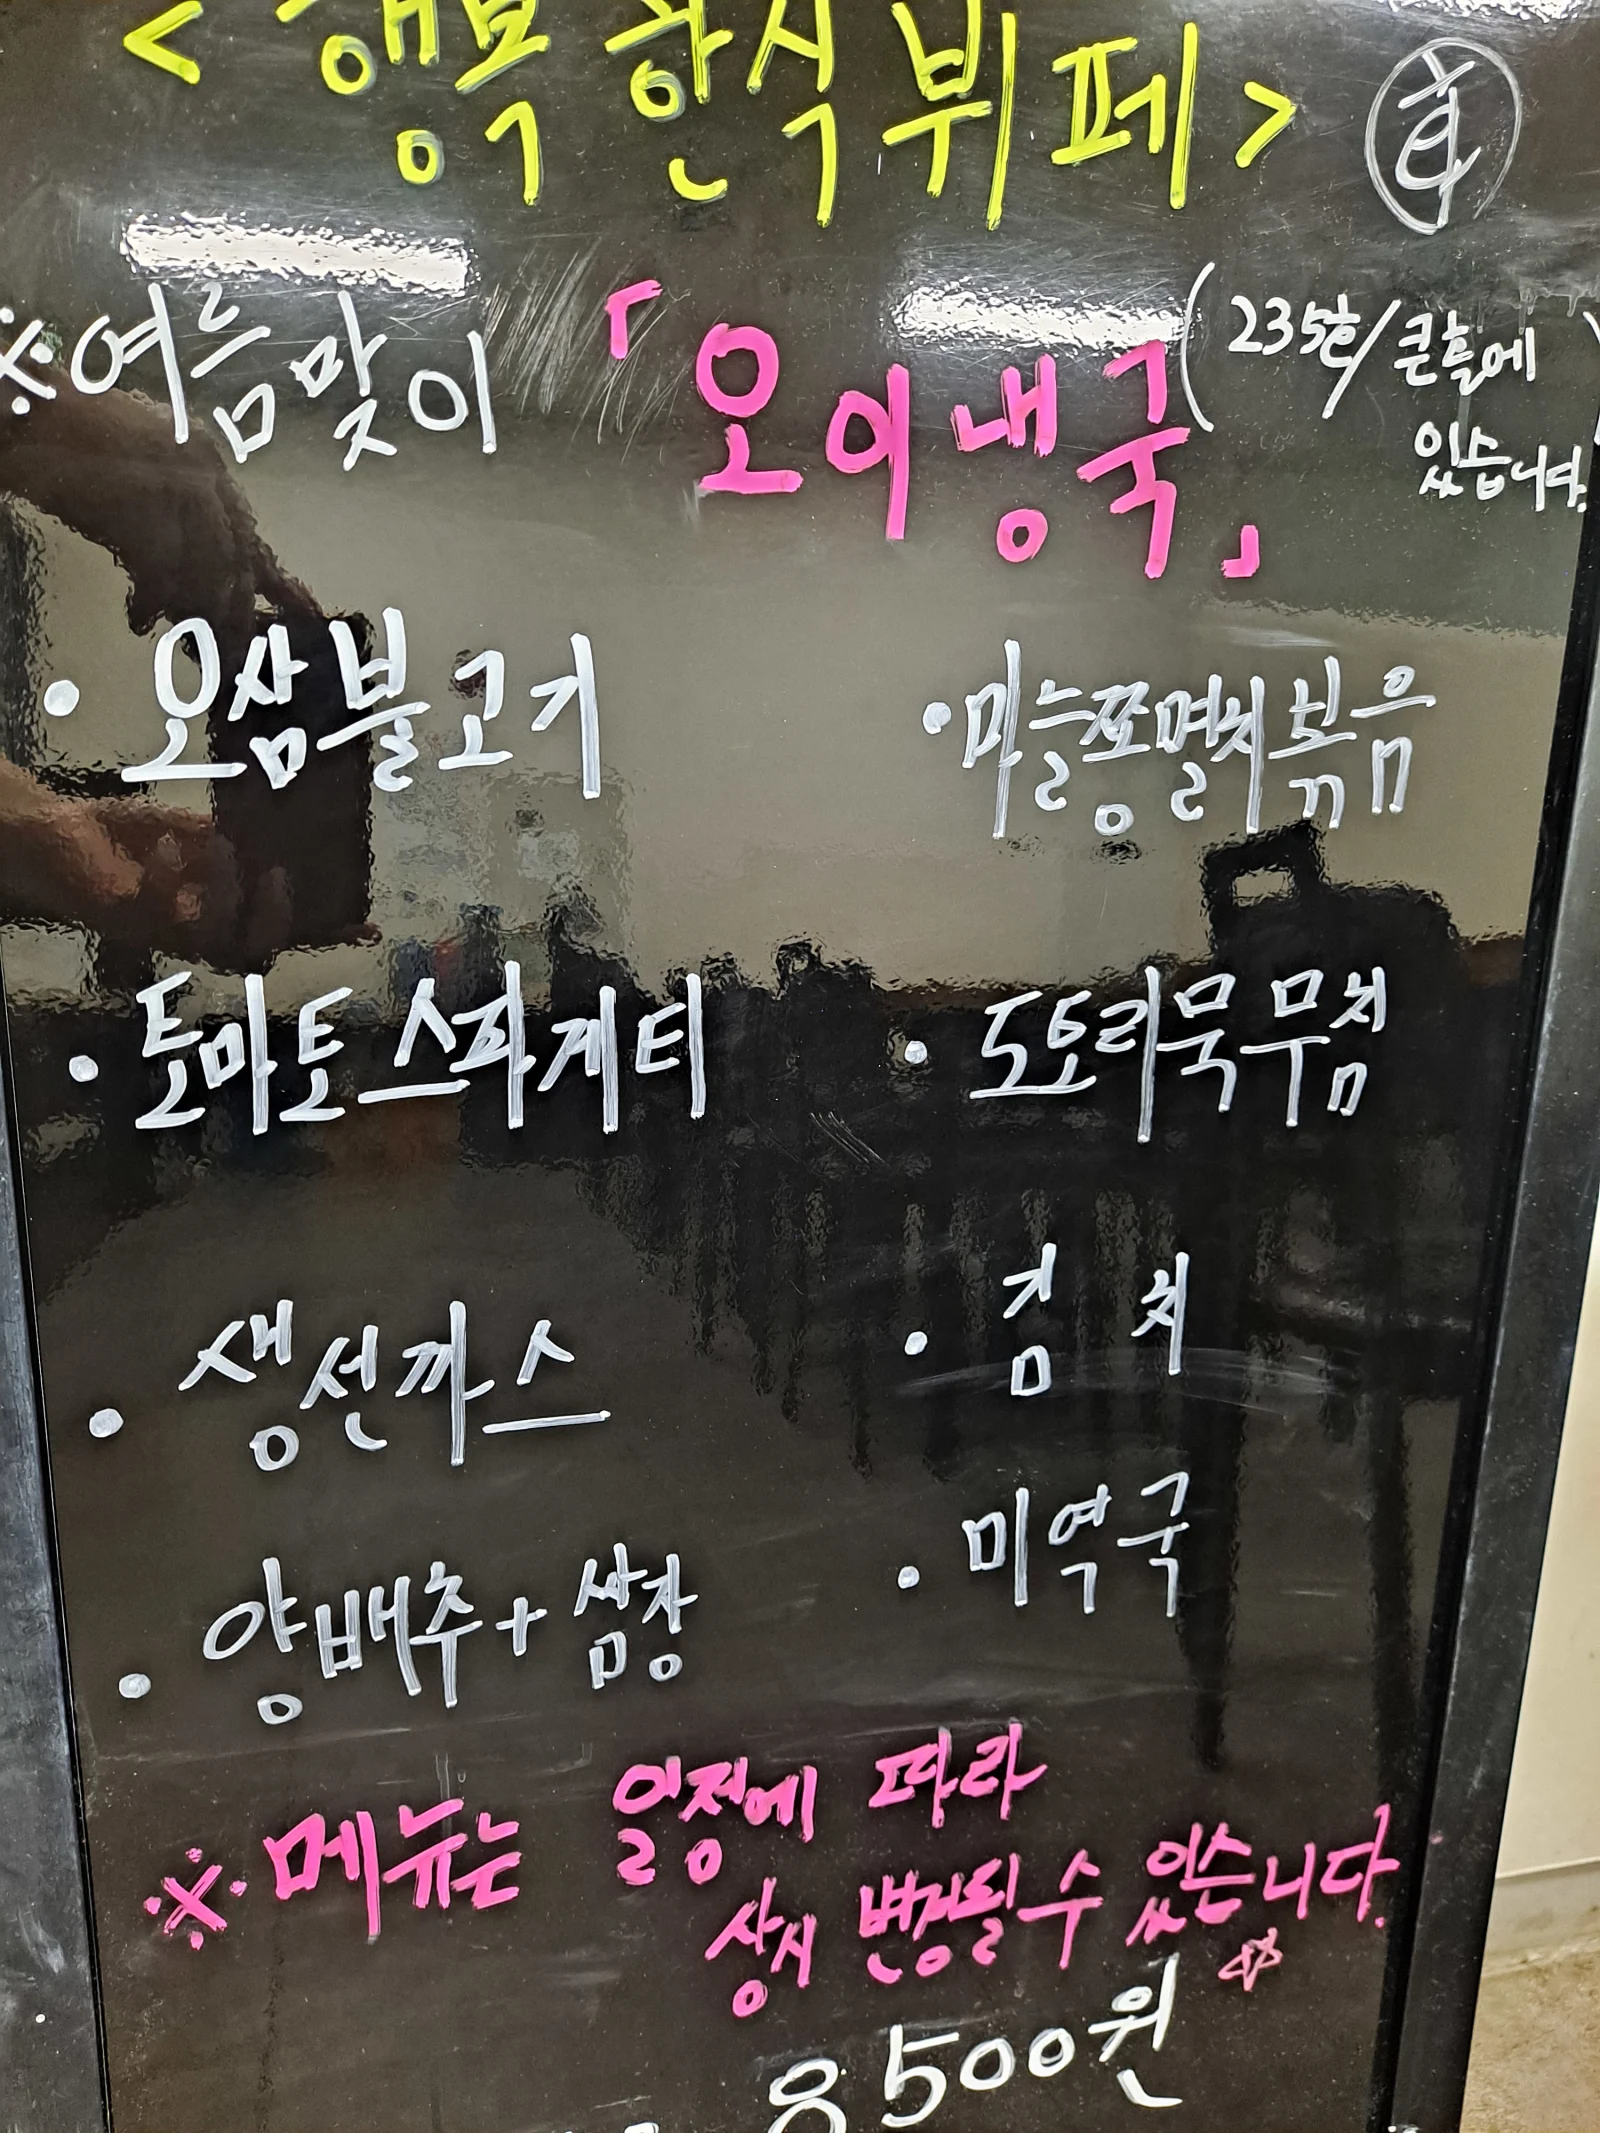 <행복한식뷔페>
※여름맞이 「오이냉국」 (235호/큰홀에
있습니다.)
• 오삼불고기
• 마늘쫑멸치볶음
• 토마토스파게티
• 도토리묵무침
• 생선까스
• 김치
• 양배추+쌈장
• 미역국
※메뉴는 일정에 따라
상시 변경될 수 있습니다.☆
8500원